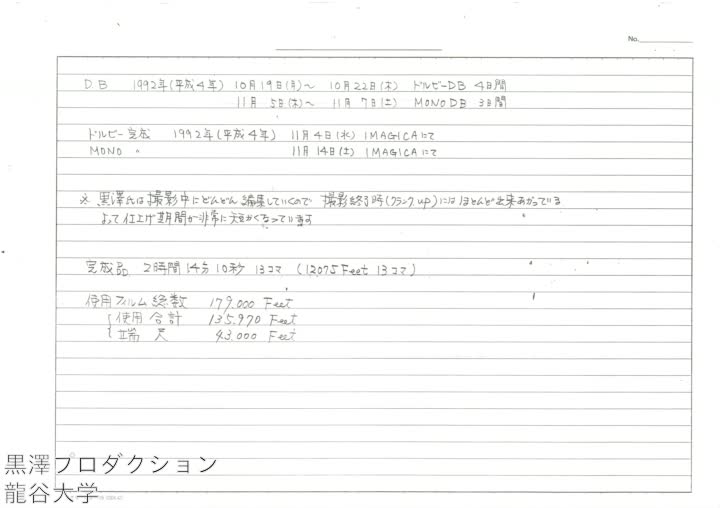 No.
D.B 1992年(平成4年) 10月19日(月)〜 10月22日(木) ドルビーDB 4日間
11月 5日(木)〜 11月 7日(土) MONO DB 3日間
ドルビー完成 1992年(平成4年) 11月4日(水) IMAGICAにて
MONO 〃 11月14日(土) IMAGICAにて
※ 黒澤氏は撮影中にどんどん編集していくので 撮影終了時(クランクup)にはほとんど出来あがっている
よって仕上げ期間が非常に短かくなっています
完成品 2時間14分10秒 13コマ (12075 Feet 13コマ)
使用フィルム総数 179,000 Feet
使用合計 135,970 Feet
端尺 43,000 Feet
黒澤プロダクション
龍谷大学